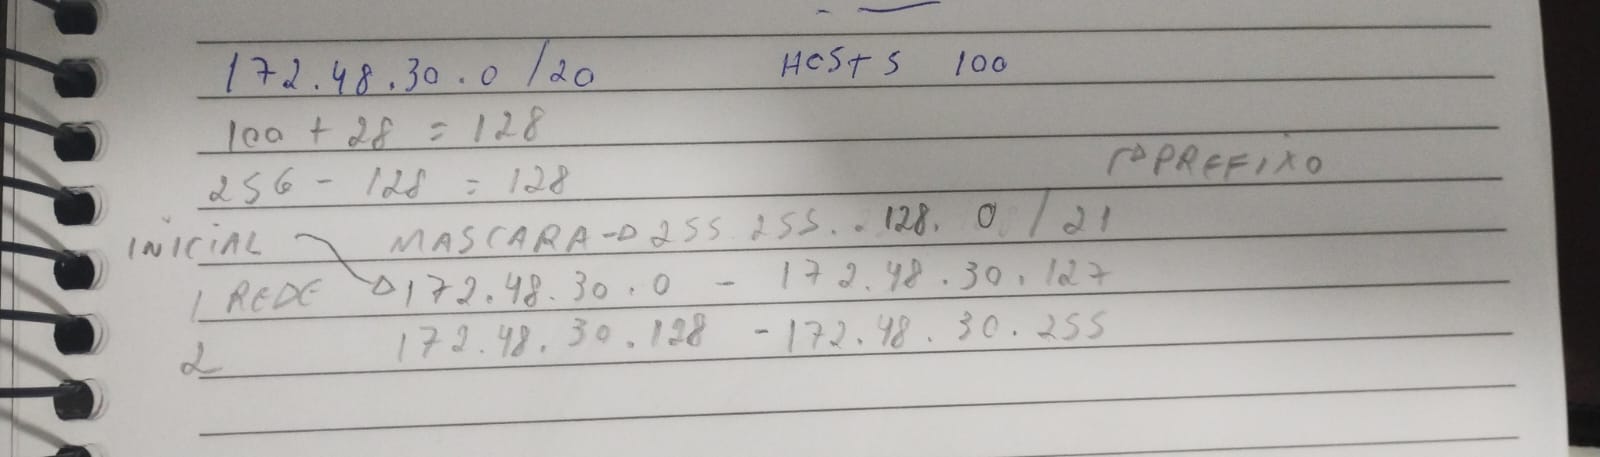 172.48.30.0 /20 HOSTS 100
100 + 28 = 128
256 - 128 = 128
PREFIXO
INICIAL MASCARA 255.255.128.0 / 21
1 REDE 172.48.30.0 - 172.48.30.127
2 172.48.30.128 - 172.48.30.255